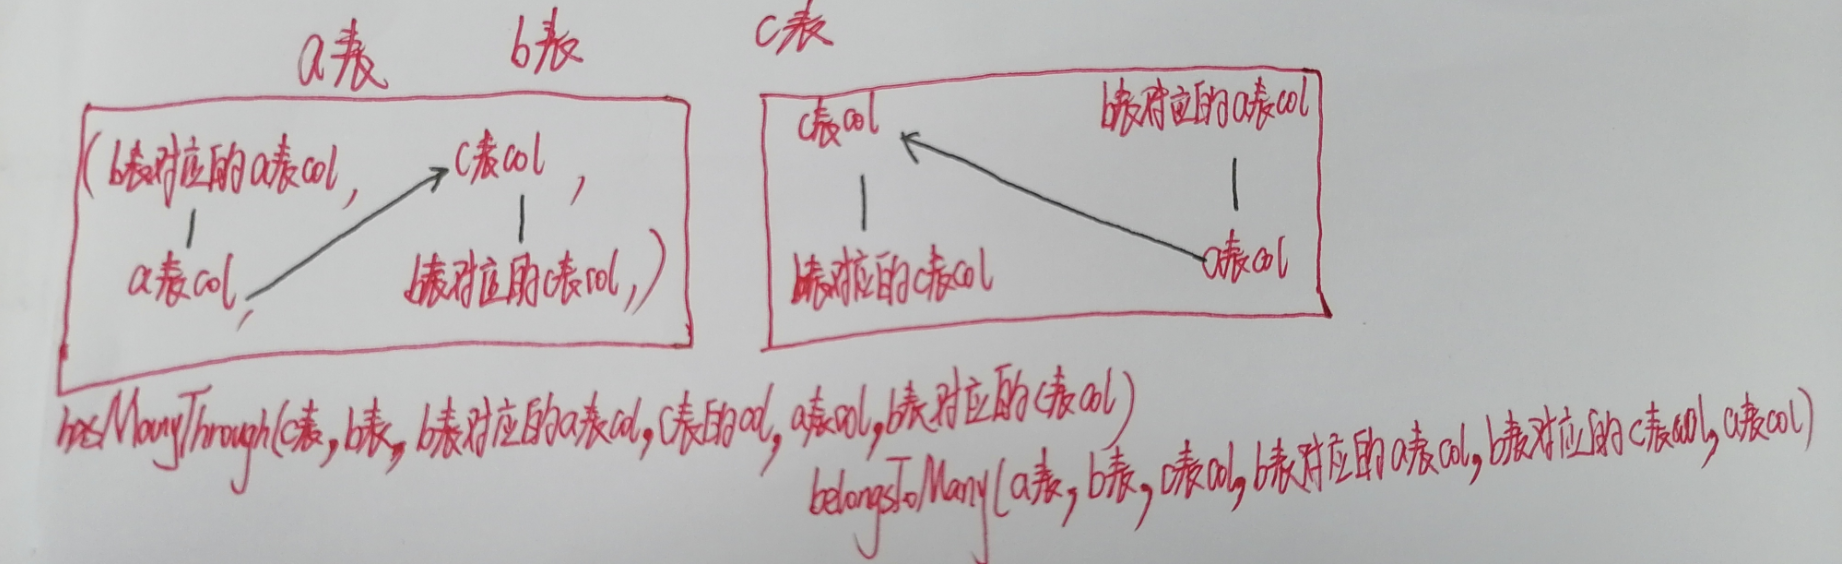 a表 b表 c表
(b表对应的a表col, c表col,
a表col, b表对应的c表col,)
c表col b表对应的a表col
b表对应的c表col a表col
hasManyThrough(c表,b表,b表对应的a表col,c表的col,a表col,b表对应的c表col)
belongsToMany(a表,b表,c表col,b表对应的a表col,b表对应的c表col,a表col)